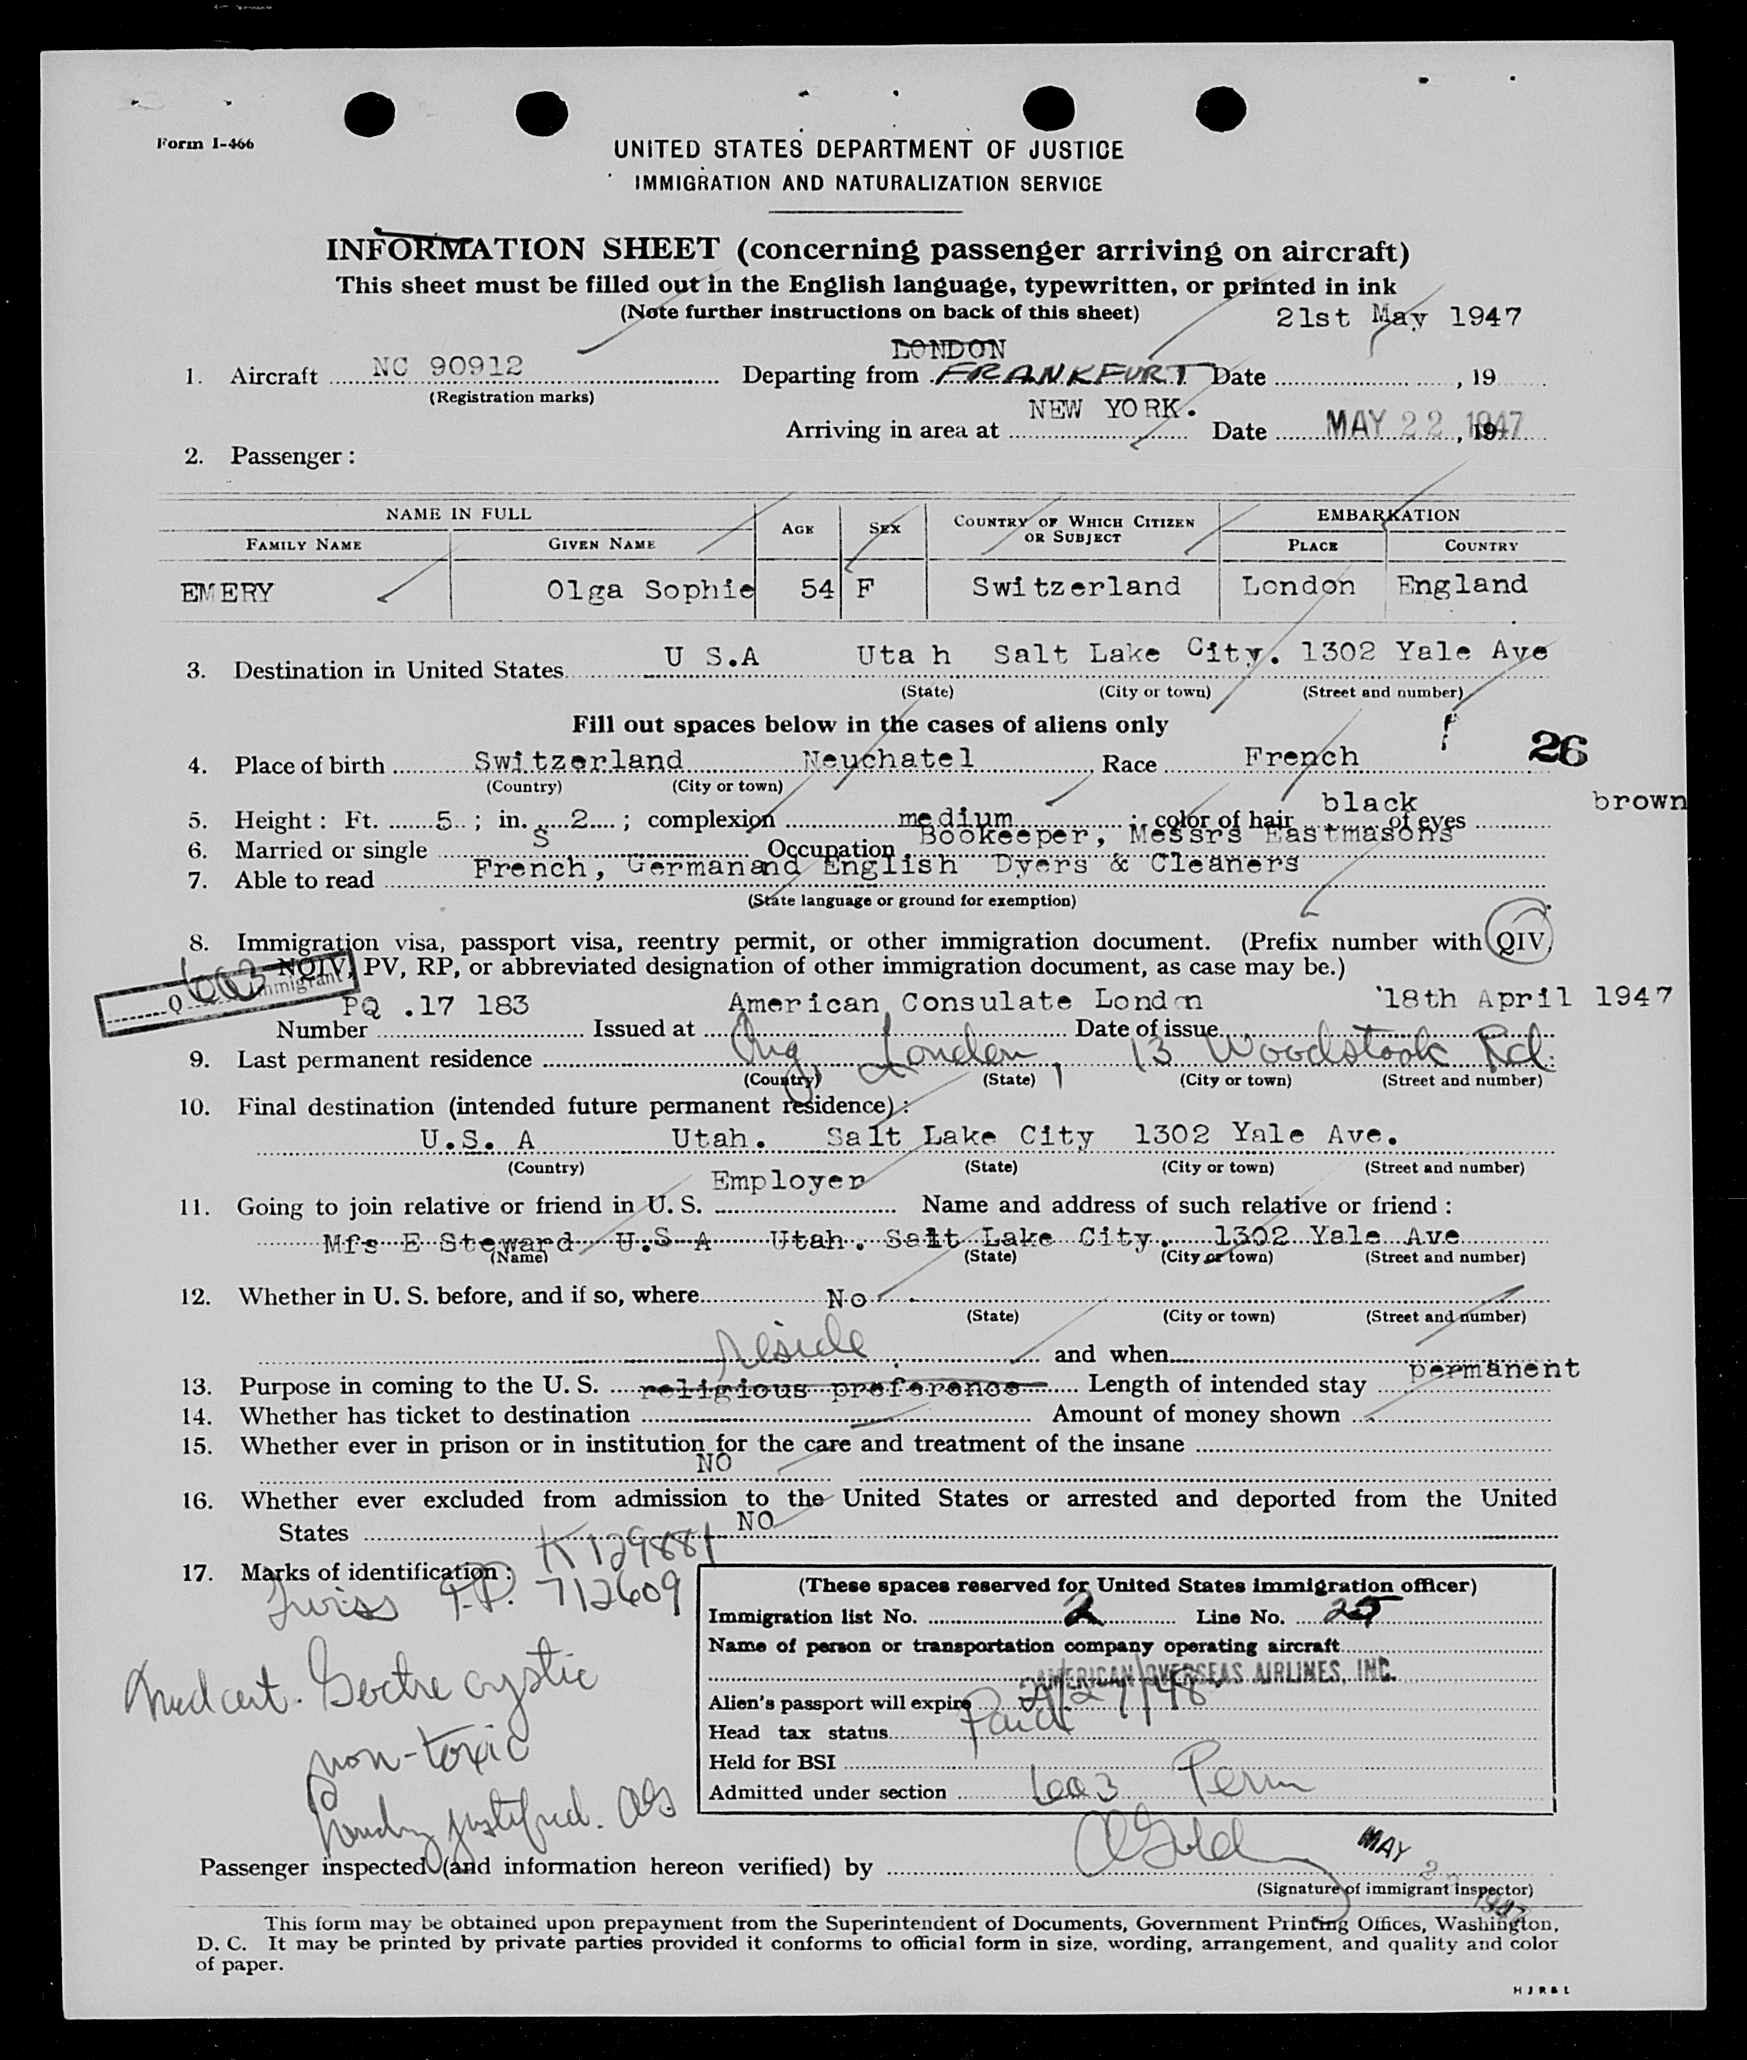 Form I-466
UNITED STATES DEPARTMENT OF JUSTICE
IMMIGRATION AND NATURALIZATION SERVICE
INFORMATION SHEET (concerning passenger arriving on aircraft)
This sheet must be filled out in the English language, typewritten, or printed in ink
(Note further instructions on back of this sheet)
21st May 1947
LONDON
1. Aircraft NC 90912 Departing from FRANKFURT Date , 19
(Registration marks)
NEW YORK.
Arriving in area at Date MAY 22 1947 , 19
2. Passenger :
NAME IN FULL AGE SEX COUNTRY OF WHICH CITIZEN OR SUBJECT EMBARKATION
FAMILY NAME GIVEN NAME PLACE COUNTRY
EMERY Olga Sophie 54 F Switzerland London England
3. Destination in United States U S.A Utah Salt Lake City. 1302 Yale Ave
(State) (City or town) (Street and number)
Fill out spaces below in the cases of aliens only
4. Place of birth Switzerland Neuchatel Race French 26
(Country) (City or town)
black brown
5. Height : Ft. 5 ; in. 2 ; complexion medium ; color of hair of eyes
6. Married or single S Occupation Bookeeper, Messrs Eastmasons
7. Able to read French, German and English Dyers & Cleaners
(State language or ground for exemption)
8. Immigration visa, passport visa, reentry permit, or other immigration document. (Prefix number with QIV,
NQIV, PV, RP, or abbreviated designation of other immigration document, as case may be.)
Q 603 Immigrant
PQ .17 183 American Consulate London 18th April 1947
Number Issued at Date of issue
9. Last permanent residence Eng London, 13 Woodstook Rd.
(Country) (State) (City or town) (Street and number)
10. Final destination (intended future permanent residence) :
U.S. A Utah. Salt Lake City 1302 Yale Ave.
(Country) (State) (City or town) (Street and number)
Employer
11. Going to join relative or friend in U. S. Name and address of such relative or friend :
Mrs E Steward U.S A Utah. Salt Lake City. 1302 Yale Ave
(Name) (State) (City or town) (Street and number)
12. Whether in U. S. before, and if so, where No
(State) (City or town) (Street and number)
reside and when
permanent
13. Purpose in coming to the U. S. religious preference Length of intended stay
14. Whether has ticket to destination Amount of money shown
15. Whether ever in prison or in institution for the care and treatment of the insane
NO
16. Whether ever excluded from admission to the United States or arrested and deported from the United
States NO
K129881
17. Marks of identification :
Swiss P.P. 712609
(These spaces reserved for United States immigration officer)
Immigration list No. 2 Line No. 25
Name of person or transportation company operating aircraft
AMERICAN OVERSEAS AIRLINES, INC.
Med cert. Goitre cystic
Alien's passport will expire 2/27/48
Head tax status Paid
non-toxic
Held for BSI
Admitted under section 603 Perm
justified.
Passenger inspected (and information hereon verified) by
MAY 1947
(Signature of immigrant inspector)
This form may be obtained upon prepayment from the Superintendent of Documents, Government Printing Offices, Washington,
D. C. It may be printed by private parties provided it conforms to official form in size, wording, arrangement, and quality and color
of paper.
H J R & L